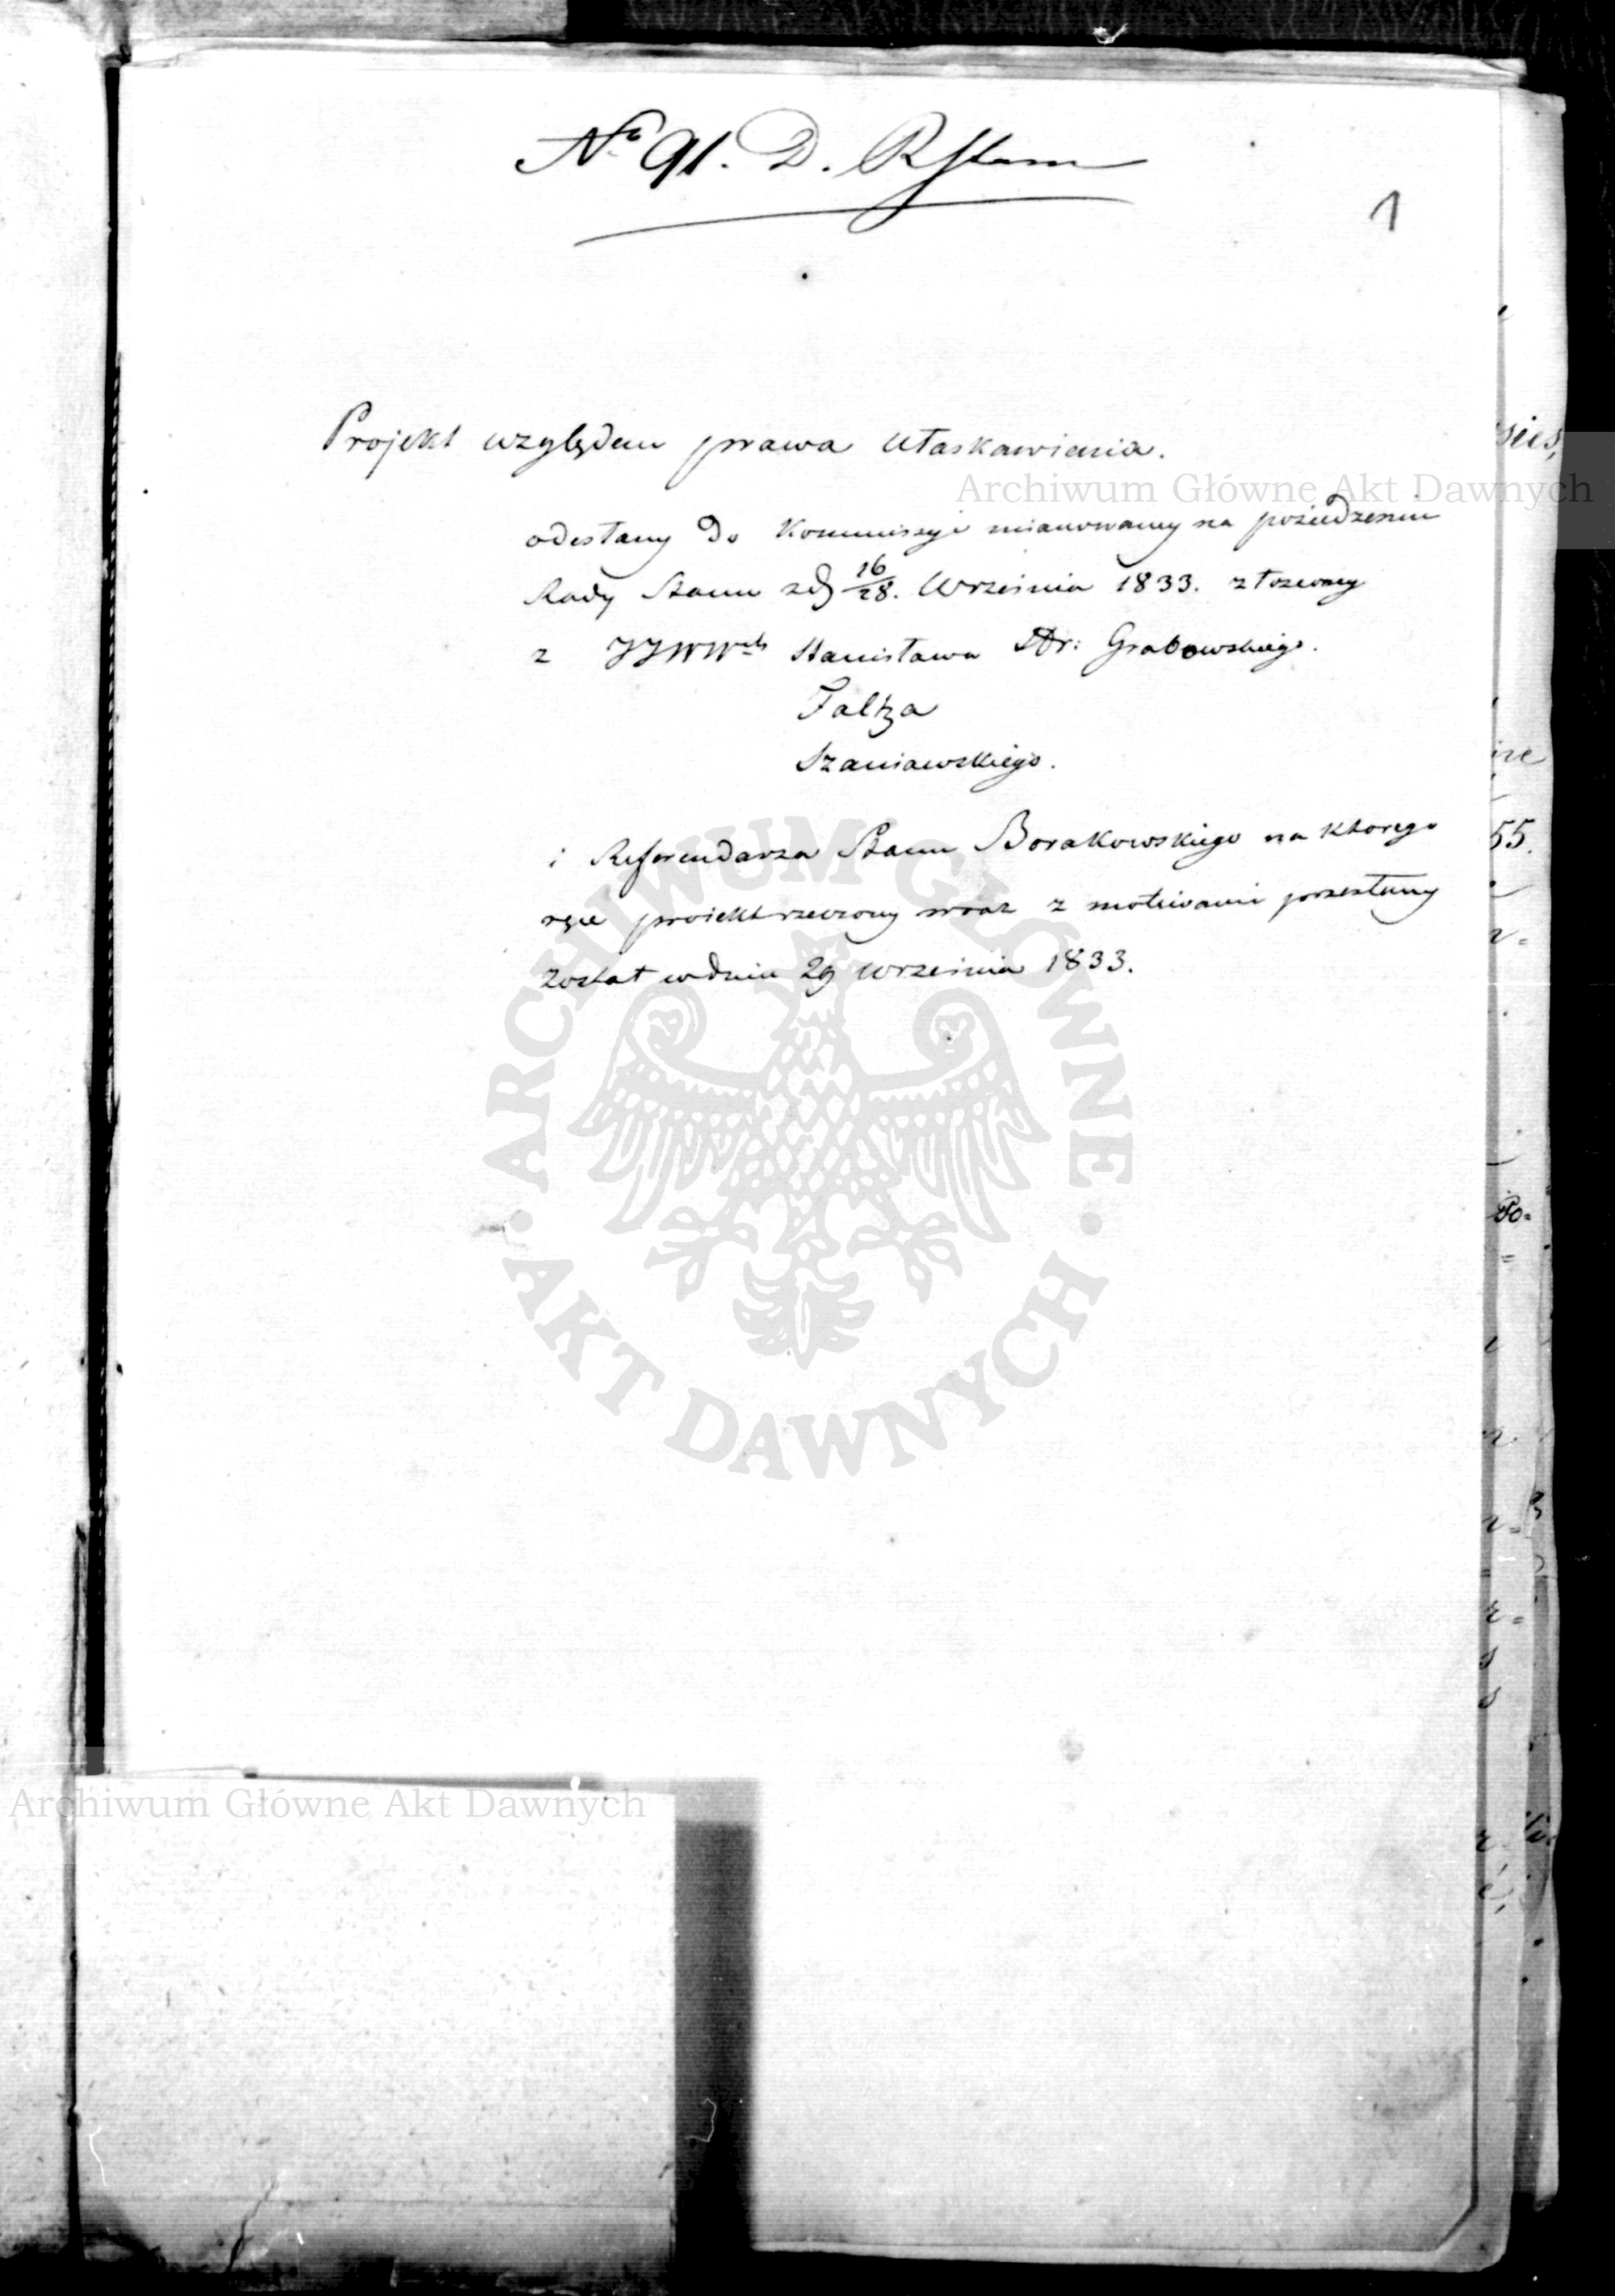 No 91. D. RStanu
1
Projekt względem prawa ułaskawienia.
odesłany do Kommissyi mianowaney na posiedzeniu
Rady Stanu z d. 16/28. Września 1833. złożoney
z JJWWch Stanisława Hr: Grabowskiego.
Faltza
Szaniawskiego.
i Referendarza Stanu Borakowskiego na ktorego
ręce proiekt rzeczony wraz z motivami przesłany
został w dniu 29 września 1833.
Archiwum Główne Akt Dawnych
ARCHIWUM GŁÓWNE AKT DAWNYCH
Archiwum Główne Akt Dawnych
55.
Po=